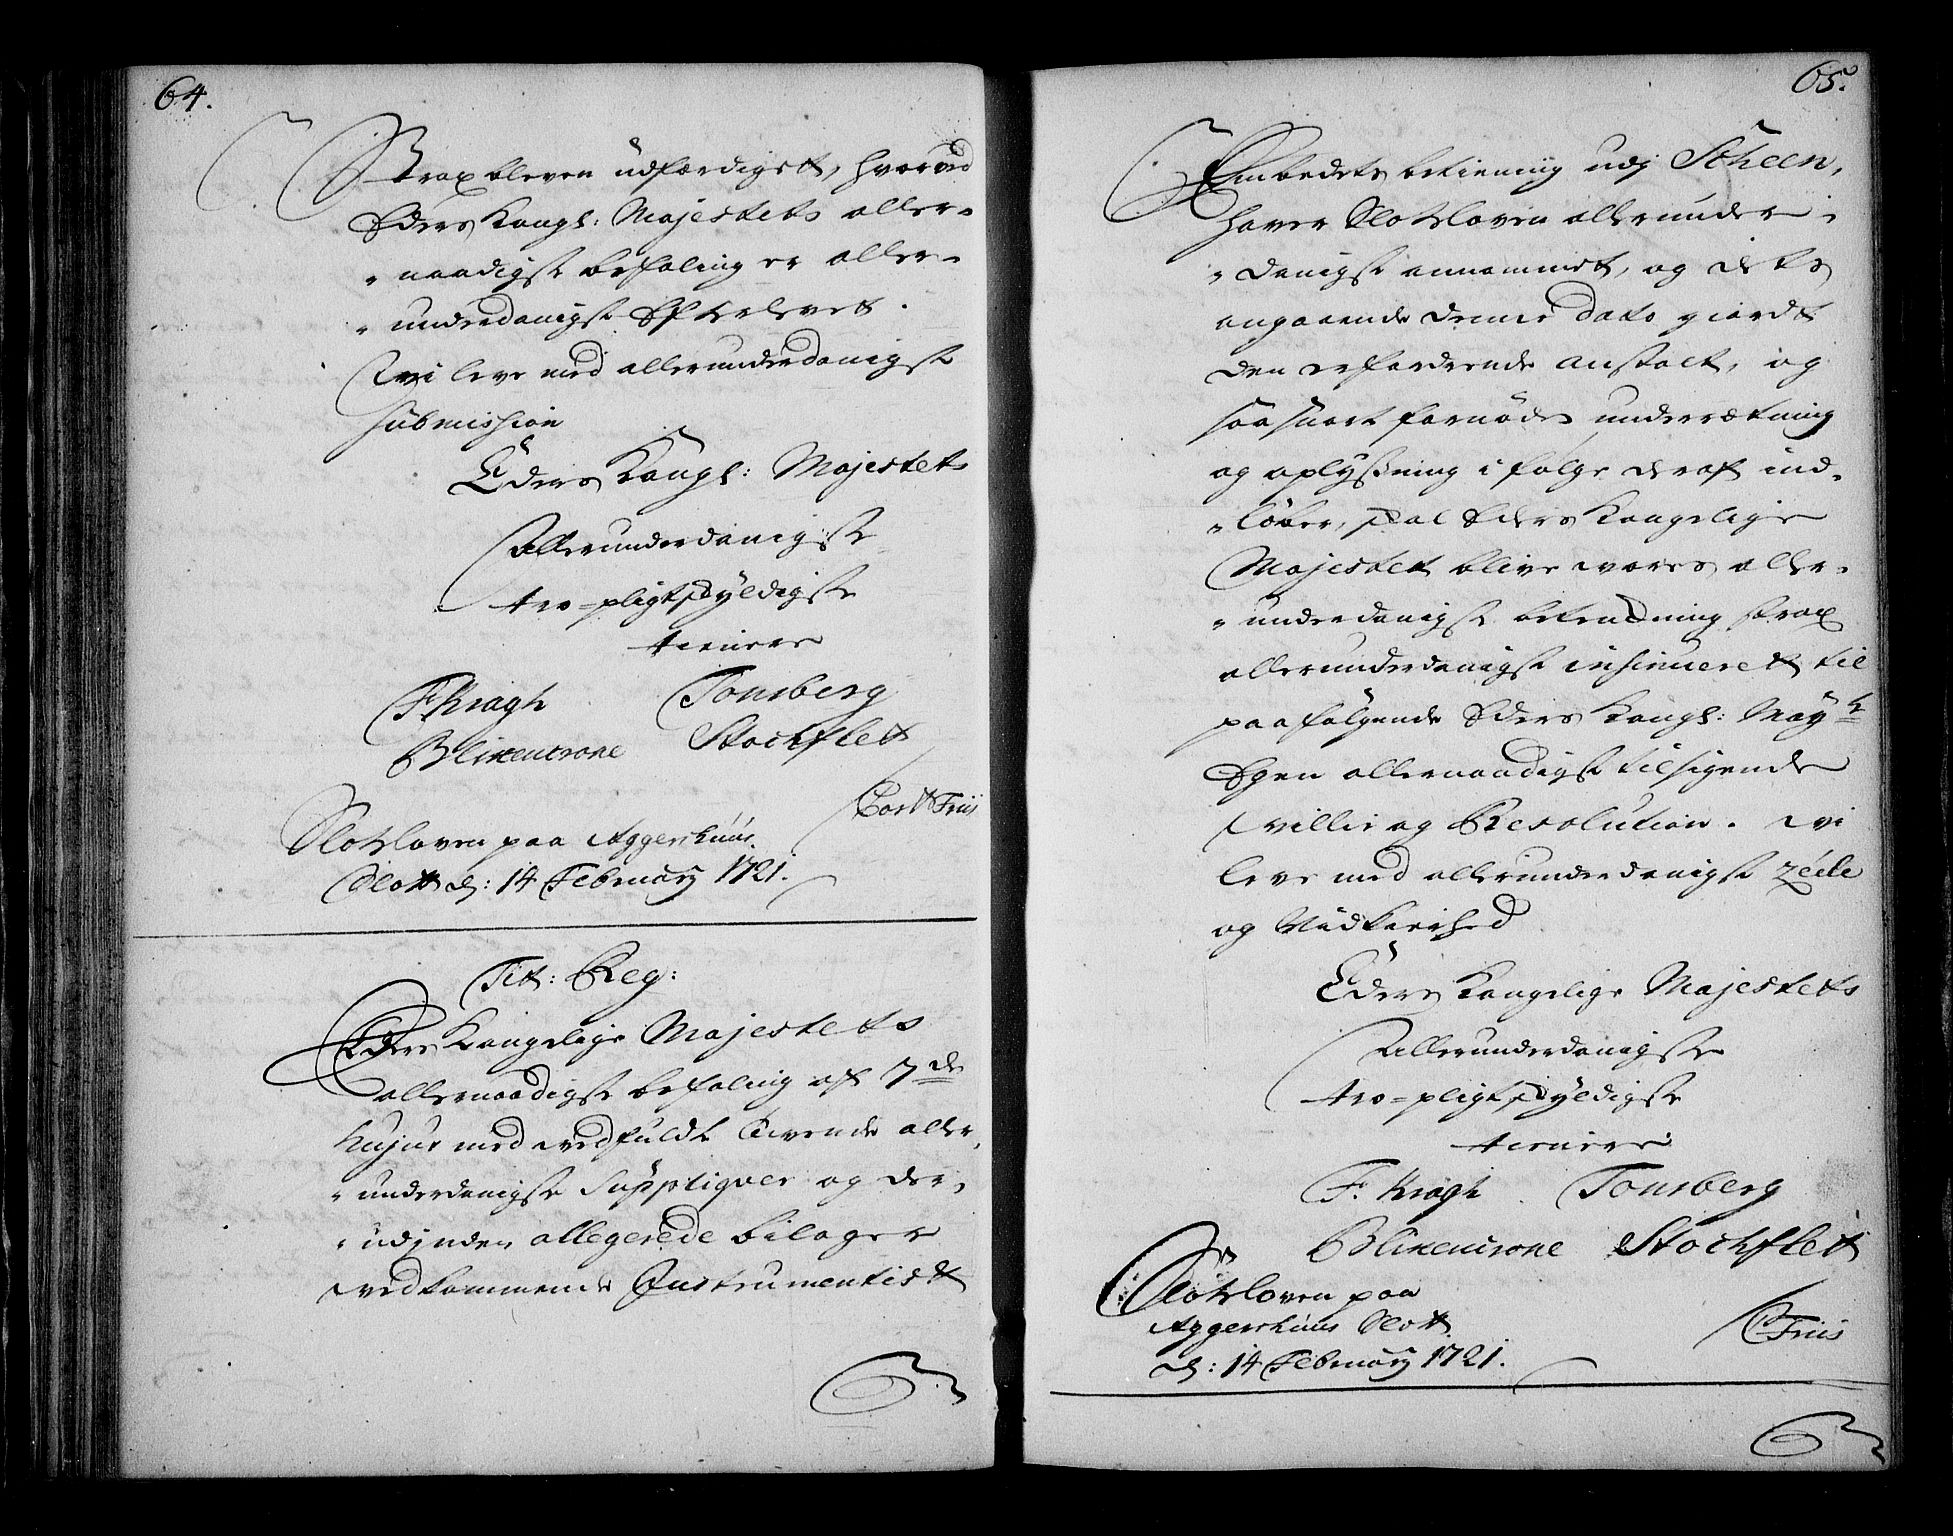 64.
Strax bleven udfærdiget, hvorved
Eders Kongl: Majestets aller-
naadigste befaling er aller-
underdanigst Efterlevet.
Wi leve med allerunderdanigst
submission
Eders Kongl: Majestets
Allerunderdanigste
troe-pligtskyldigste
tienere
F. Kragh Tonsberg
Blixencrone Stochflett
Cort Friis
Slotsloven paa Aggershuus
Slott d: 14 February 1721.
Tit: Reg:
Eders Kongelige Majestets
allernaadigste befaling af 7de
hujus med vedfuldte tvende aller-
underdanigste Suppliqver og der-
udinden allegerede bilager
vedkommende Instrumentist
65.
Embedets betiening udj Scheen,
haver Slotsloven allerunder-
danigst annammet, og dets
angaaende denne dato giordt
den erfordrende anstalt, og
saasnart fornøden underrætning
og oplysning i følge deraf ind-
løber, skal Eders Kongelige
Majestet blive vores aller-
underdanigste betenckning strax
allerunderdanigst insinueret til
paafølgende Eders Kongl: Mayts
Egen allernaadigst tilsigende
villie og Resolution. Wi
leve med allerunderdanigst zeele
og Nidkierhed
Eders Kongelige Majestets
Allerunderdanigste
troe-pligtskyldigste
tienere
F. Kragh Tonsberg
Blixencrone Stochflett
Slotsloven paa
Aggershuus Slott
d: 14 February 1721.
C Friis